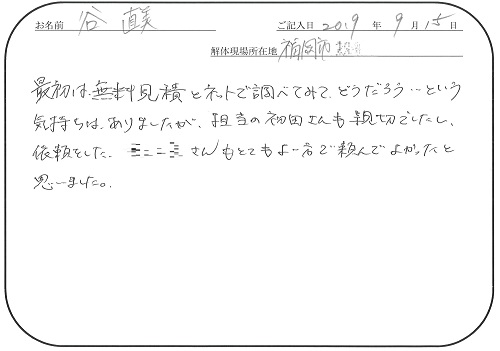 お名前 谷 直美 ご記入日 2019 年 9 月 15 日
解体現場所在地 福岡市
最初は、無料見積とネットで調べてみて、どうだろう…という
気持ちは、ありましたが、担当の初田さんも親切でしたし、
依頼をした。 さんもとてもよい方で頼んでよかったと
思いました。